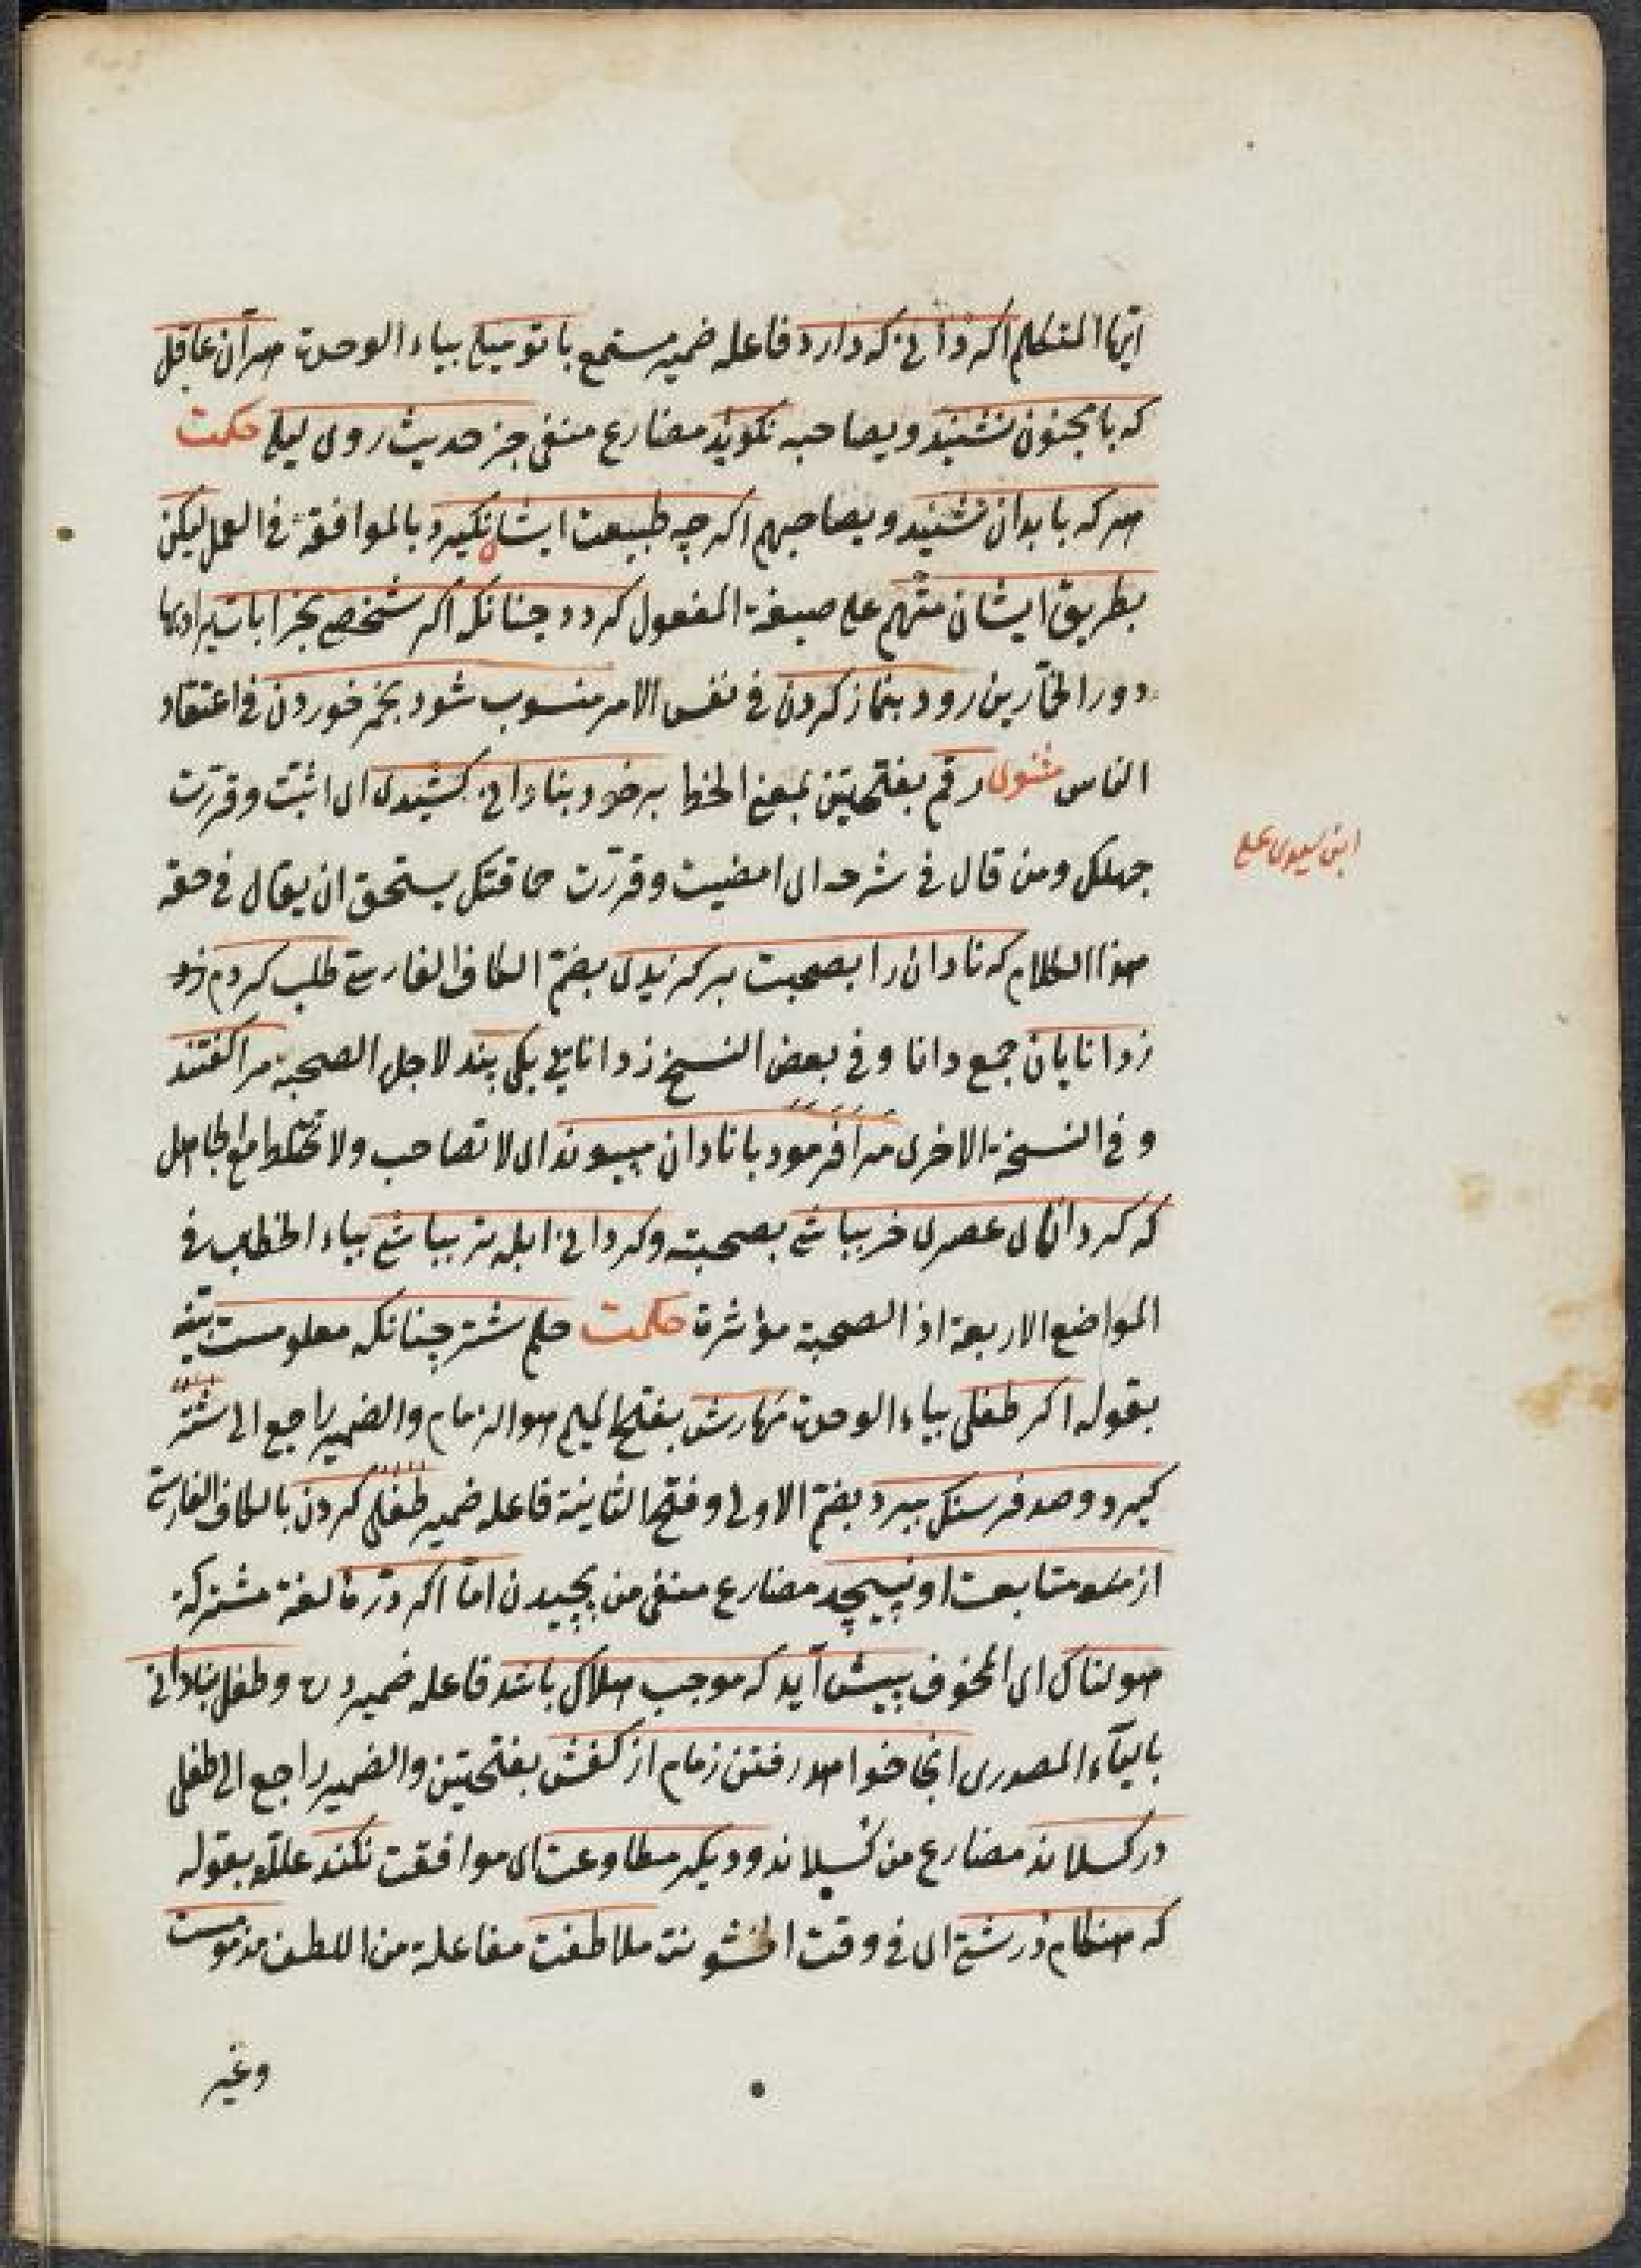 ايها المتكلم اكر دانى كه دارد فاعله ضمير مستمع با تو ميلى بياء الوحدت هر آن عاقل
كه با مجنون نشيند ويصاحبه نكويد مضارع منفى جز حديث روى ليلى حكمت
هر كه با بدان نشيند ويصاحبهم اكر چه طبيعت ايشان نكيرد بالموافقة فى العمل ليكن
بطريق ايشان متّهم على صيغة المفعول كردد چنانكه اكر شخصى بخرابات يراد بها
دور الخمّارين رود بنماز كردن فى نفس الامر منسوب شود بخمر خوردن فى اعتقاد
الناس مثنوى رقم بفتحتين بمعنى الخط بر خود بنادانى كشيدى اى اثبتّ وقرّرت
جهلك ومن قال فى شرحه اى امضيت وقرّرت حماقتك يستحق ان يقال فى حقه
هذا الكلام كه نادان را بصحبت بر كزيدى بضمّ الكاف الفارسى طلب كردم
زدانايان جمع دانا وفى بعض النسخ زدانايى يكى پند لاجل الصحبة مرا كفتند
وفى النسخة الاخرى مرا فرمود با نادان مپيوند اى لا تصاحب ولا تختلط مع الجاهل
كه كر داناى عصرى خر بباشى بصحبته وكر دانى ابله تر بباشى بياء الخطاب فى
المواضع الاربعة اذ الصحبة مؤثرة حكمت حلم شتر چنانكه معلومست بيّنه
بقوله اكر طفلى بياء الوحدت مهارش بفتح الميم هو الزمام والضمير راجع الى شتر
كيرد وصد فرسنك ببرد بضمّ الاولى وفتح الثانية فاعله ضمير طفلى كردن بالكاف الفارسى
از متابعت او نپيچد مضارع منفى من پيچيدن امّا اكر درّۀ لغة مشتركة
هولناك اى المخوف پيش آيد كه موجب هلاك باشد فاعله ضمير دره وطفل بنادانى
بالياء المصدرى آنجا خواهد رفتن زمام از كفش بفتحتين والضمير راجع الى طفلى
در كسلاند مضارع من كسلاند وديكر مطاوعت اى موافقت نكند علله بقوله
كه هنكام درشتى اى فى وقت الخشونت ملاطفت مفاعلة من اللطف مذمومست
وغير